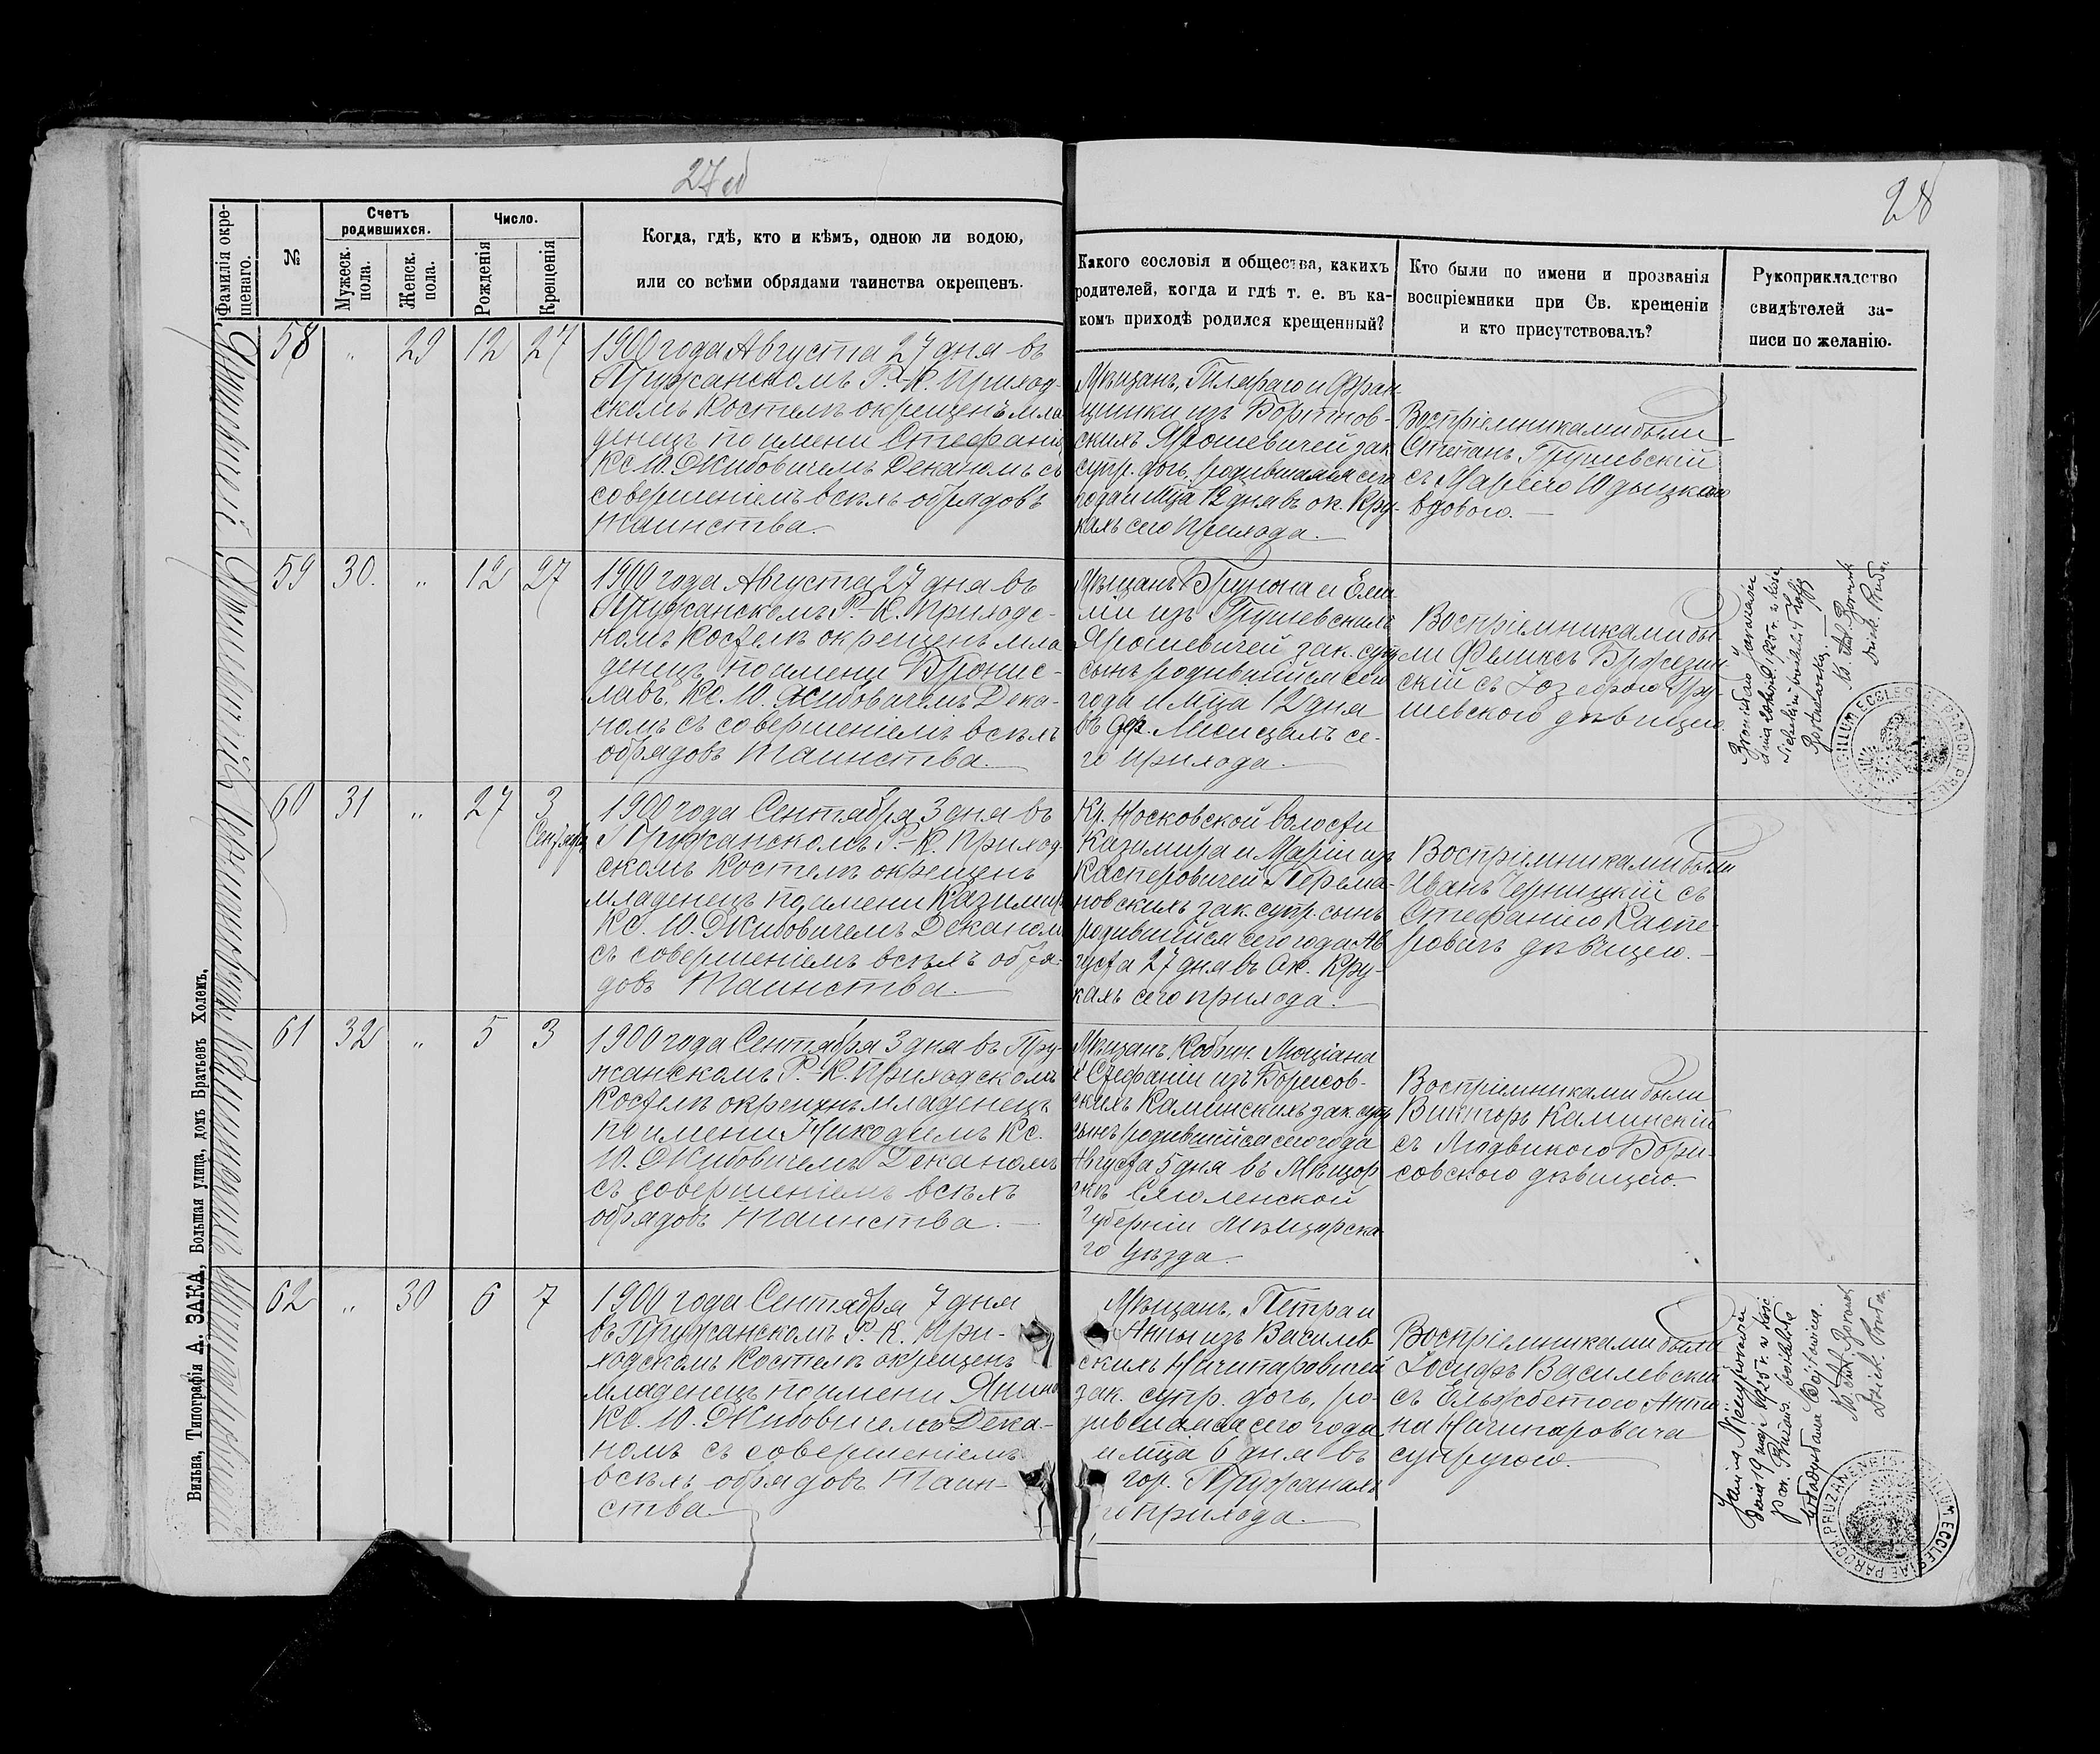 27 об
28
Фамилія окре-
щенаго.
№
Счетъ
родившихся.
Мужеск.
пола.
Женск.
пола.
Число.
Рожденія
Крещенія
Когда, гдѣ, кто и кѣмъ, одною ли водою,
или со всѣми обрядами таинства окрещенъ.
Какого сословія и общества, какихъ
родителей, когда и гдѣ т. е. въ ка-
комъ приходѣ родился крещенный?
Кто были по имени и прозванія
воспріемники при Св. крещеніи
и кто присутствовалъ?
Рукоприкладство
свидѣтелей за-
писи по желанію.
58 „ 29 12 27
1900 года Августа 27 дня въ
Пружанскомъ Р.-К. Приход-
скомъ Костелѣ окрещенъ мла
денецъ по имени Стефанія
Кс. Ю. Жибовичемъ Деканомъ съ
совершеніемъ всѣхъ обрядовъ
Таинства.
Мѣщанъ, Гиляраго и Фран-
цишки изъ Бортнов-
скихъ Ярошевичей зак.
супр. дочь, родившаяся сего
года и Мца 12 дня въ ок. Кру-
кахъ сего прихода.
Воспріемниками были
Степанъ Грушевскій
съ Маріею Юдыцкою
вдовою.
59 30. „ 12 27
1900 года Августа 27 дня въ
Пружанскомъ Р.-К. Приходс-
комъ Костелѣ окрещенъ мла
денецъ по имени Бронис-
лавъ. Кс. Ю. Жибовичемъ Дека-
номъ съ совершеніемъ всѣхъ
обрядовъ Таинства.
Мѣщанъ Брунона и Еми-
ліи изъ Грушевскихъ
Ярошевичей зак. супр
сынъ родившійся сего
года и Мца 12 дня
въ дер. Лисицахъ се-
го прихода.
Воспріемниками бы-
ли Феликсъ Бржезин-
скій съ Іозефою Гру-
шевскою дѣвицею.
60 31 „ 27 3
Сентября
1900 года Сентября 3 дня въ
Пружанскомъ Р.-К. Приход-
скомъ Костелѣ окрещенъ
младенецъ по имени Казимиръ
Кс. Ю. Жибовичемъ Деканомъ
съ совершеніемъ всѣхъ обря-
довъ Таинства.
Кр. Носковской волости
Казимира и Маріи изъ
Касперовичей Герма-
новскихъ зак. супр. сынъ
родившійся сего года Ав
густа 27 дня въ ок. Кру-
кахъ сего прихода.
Воспріемниками были
Иванъ Черницкій съ
Стефаніею Каспе-
ровичъ дѣвицею.
61 32 „ 5 3
1900 года Сентября 3 дня въ Пру-
жанскомъ Р.-К. Приходскомъ
Костелѣ окрещенъ младенецъ
по имени Никодимъ Кс.
Ю. Жибовичемъ Деканомъ
съ совершеніемъ всѣхъ
обрядовъ Таинства.
Мѣщанъ Кобрин. Люціана
и Стефаніи изъ Борисов-
скихъ Каминскихъ зак. супр
сынъ родившійся сего года
Августа 5 дня въ
Смоленской
Губерніи
го Уѣзда.
Воспріемниками были
Викторъ Каминскій
съ Людвикою Бори-
совскою дѣвицею.
62 „ 30 6 7
1900 года Сентября 7 дня
въ Пружанскомъ Р.-К. При-
ходскомъ Костелѣ окрещенъ
младенецъ по имени Янина
Кс. Ю. Жибовичемъ Дека-
номъ съ совершеніемъ
всѣхъ обрядовъ Таин-
ства.
Мѣщанъ, Петра и
Анны изъ Василев
скихъ Ничипоровичей
зак. супр. дочь, ро-
дившаяся сего года
и мца 6 дня въ
гор. Пружанахъ
прихода.
Воспріемниками были
Іосифъ Василевскій
съ Ельжбетою Анто-
на Ничипоровича
супругою.
Вильна, Типографія А. ЗАКА, Большая улица, домъ Братьевъ Холемъ.